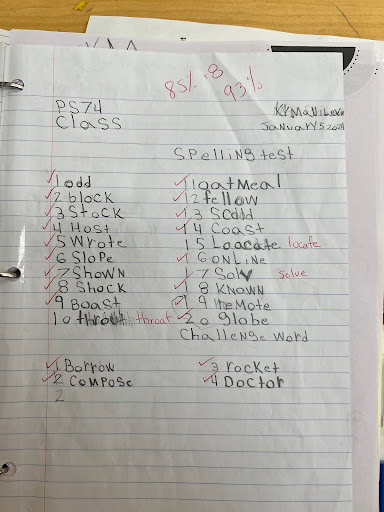 85% +8
93%
PS74
Class
January 5 202
Spelling test
1 odd
2 block
3 Stock
4 Host
5 Wrote
6 Slope
7 Shown
8 Shock
9 Boast
10 throat
11 oatmeal
12 fellow
13 Scold
14 Coast
15 Loacate locate
16 online
17 Solv solve
18 Known
19 remote
20 globe
Challenge word
1 Borrow
2 Compose
2
3 rocket
4 Doctor